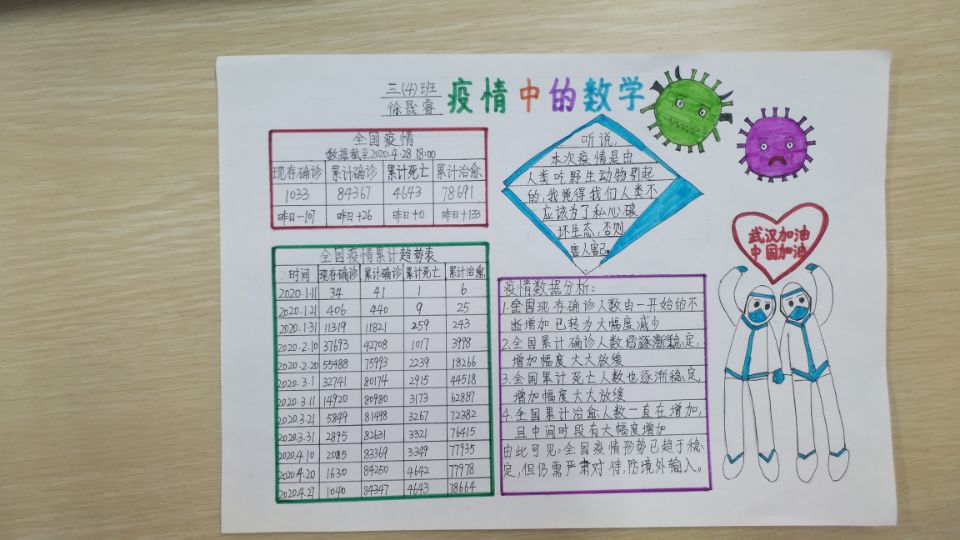 三(4)班
徐晟睿
疫情中的数学
全国疫情
数据截至2020.4.28 18:00
现存确诊 累计确诊 累计死亡 累计治愈
1033 84367 4643 78691
昨日-107 昨日+26 昨日+0 昨日+133
听说,
本次疫情是由
人类吃野生动物引起
的,我觉得我们人类不
应该为了私心破
坏生态,否则
害人害己。
武汉加油
中国加油
全国疫情累计趋势表
时间 现存确诊 累计确诊 累计死亡 累计治愈
2020.1.11 34 41 1 6
2020.1.21 406 440 9 25
2020.1.31 11319 11821 259 243
2020.2.10 37693 42708 1017 3998
2020.2.20 55488 75993 2239 18266
2020.3.1 32741 80174 2915 44518
2020.3.11 14920 80980 3173 62887
2020.3.21 5849 81498 3267 72382
2020.3.31 2895 82631 3321 76415
2020.4.10 2085 83369 3349 77935
2020.4.20 1630 84250 4642 77978
2020.4.27 1040 84347 4643 78664
疫情数据分析:
1.全国现存确诊人数由一开始的不
断增加已转为大幅度减少
2.全国累计确诊人数逐渐稳定,
增加幅度大大放缓
3.全国累计死亡人数也逐渐稳定,
增加幅度大大放缓
4.全国累计治愈人数一直在增加,
且中间时段有大幅度增加
由此可见:全国疫情形势已趋于稳
定,但仍需严肃对待,防境外输入。